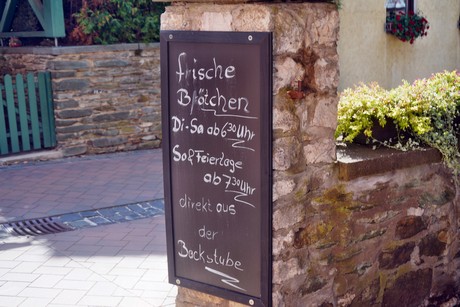 frische
Brötchen
Di-Sa ab 6³⁰ Uhr
So & Feiertage
ab 7³⁰ Uhr
direkt aus
der
Backstube